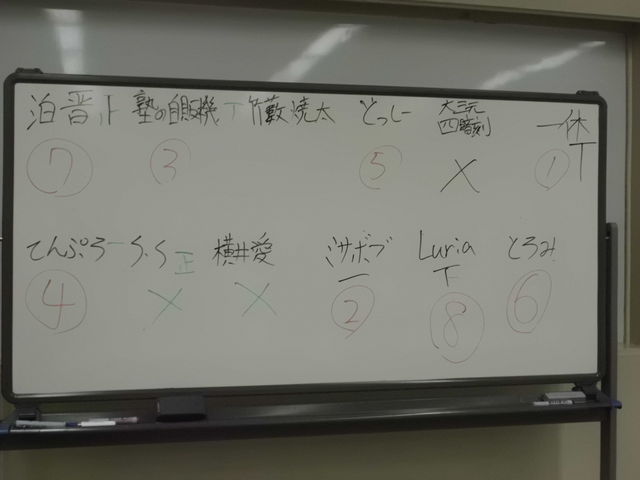 泊晋 下 塾の自販機 T 竹藪焼太 とっしー 大三元 一休
四暗刻 T
⑦ ③ ⑤ X ①
てんぷら 一 ら.ら 正 横井愛 ミサボブ 一 Luria T とろみ
④ X X ② ⑧ ⑥